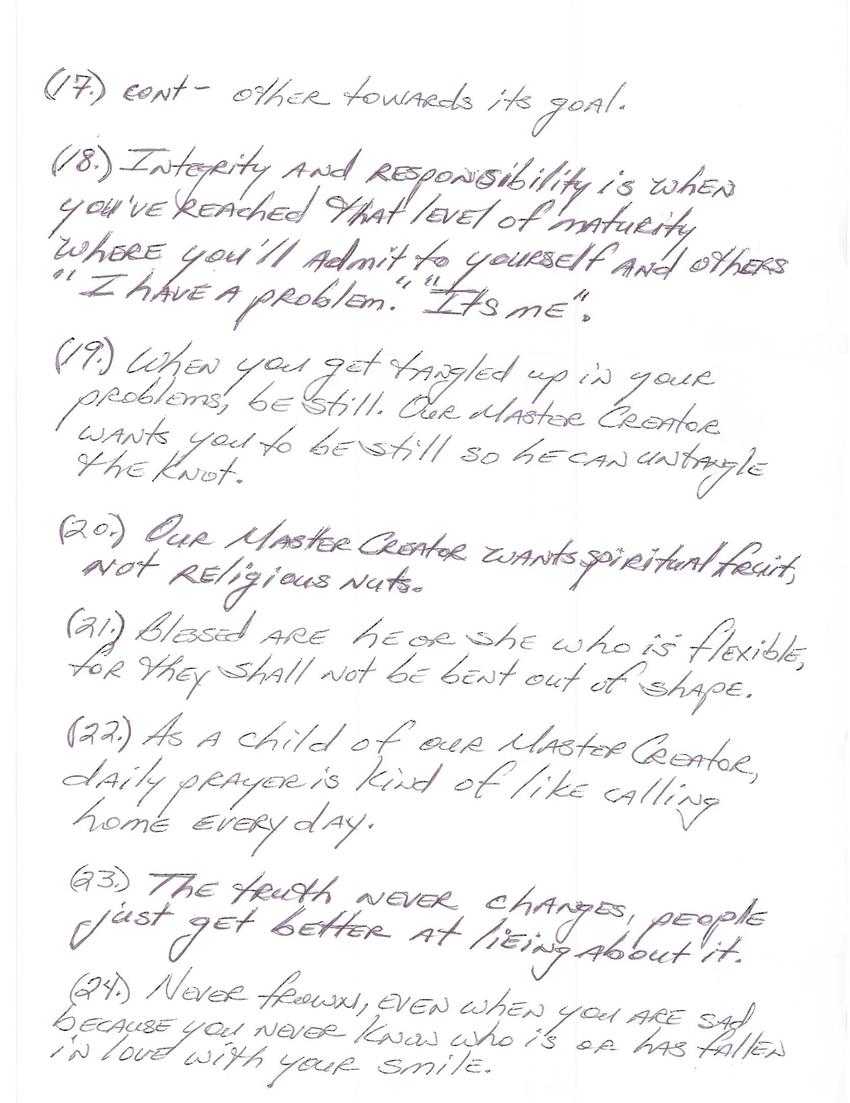 (17.) cont- other towards its goal.
(18.) Integrity and responsibility is when
you've reached that level of maturity
where you'll admit to yourself and others
"I have a problem." "Its me".
(19.) When you get tangled up in your
problems, be still. Our Master Creator
wants you to be still so he can untangle
the knot.
(20.) Our Master Creator wants spiritual fruit,
not religious nuts.
(21.) Blessed are he or she who is flexible,
for they shall not be bent out of shape.
(22.) As a child of our Master Creator,
daily prayer is kind of like calling
home every day.
(23.) The truth never changes, people
just get better at lieing about it.
(24.) Never frown, even when you are sad
because you never know who is or has fallen
in love with your smile.